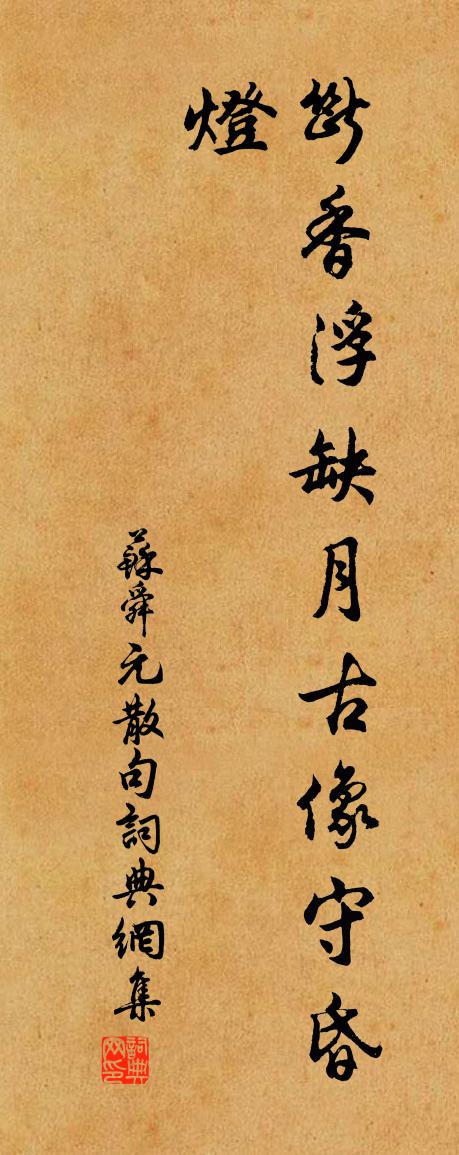 斷香浮缺月古像守昏
燈
蘇舜元散句詞典網集
詞典網印